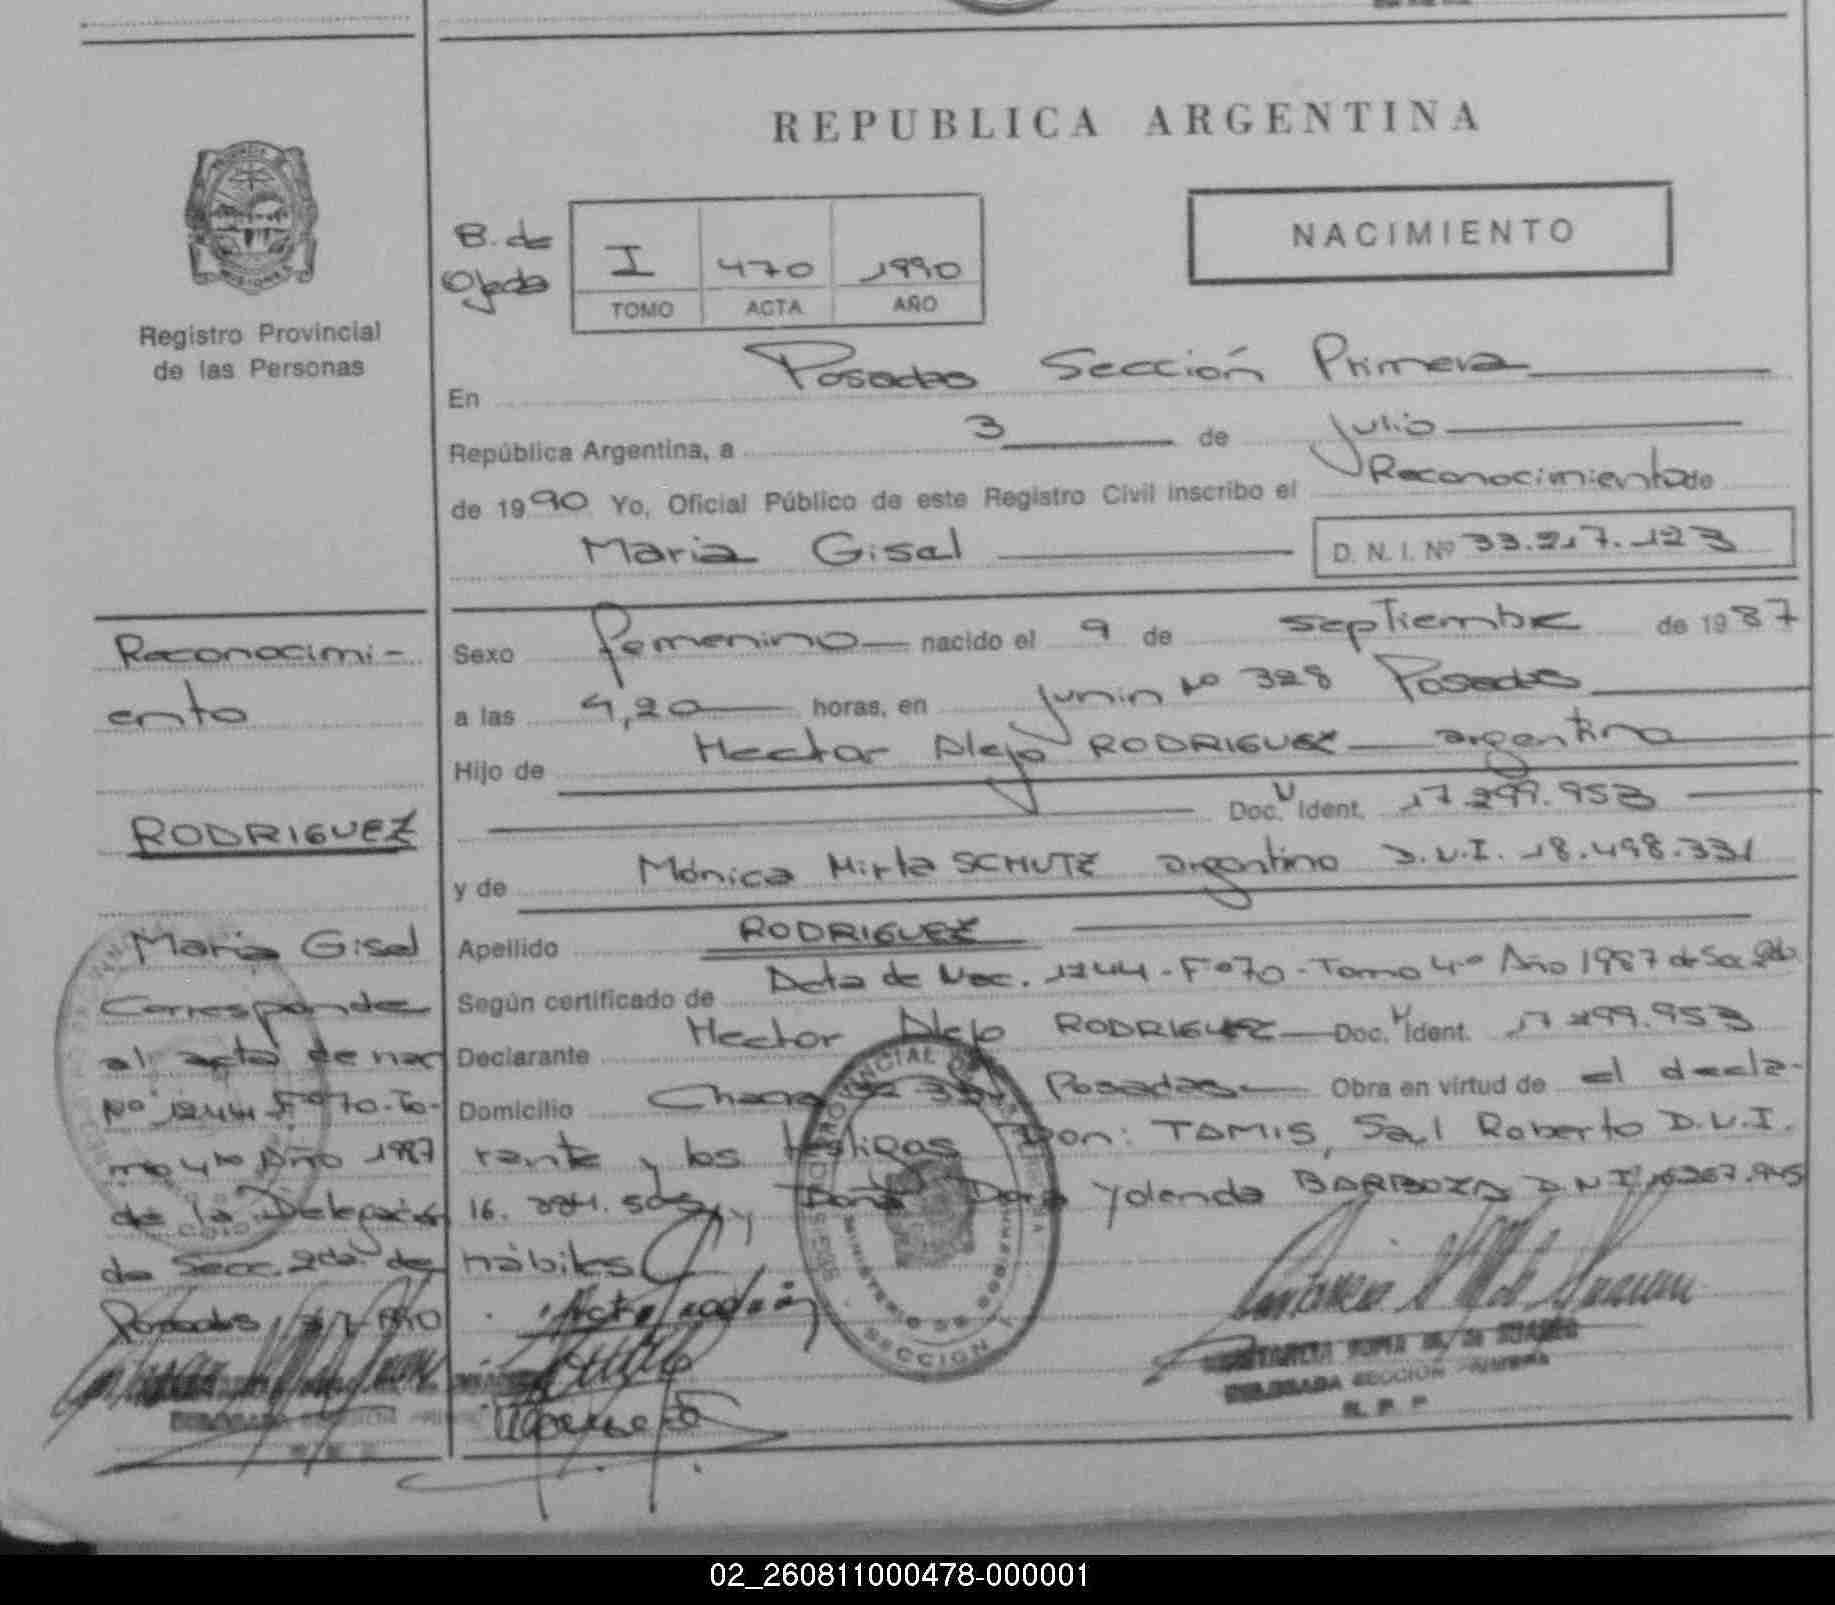 REPUBLICA ARGENTINA
NACIMIENTO
B. de
Ojeda
I 470 1990
TOMO ACTA AÑO
Registro Provincial
de las Personas
En Posadas Sección Primera
República Argentina, a 3 de Julio
de 1990 Yo, Oficial Público de este Registro Civil inscribo el Reconocimiento de
Maria Gisel D. N. I. Nº 33.217.123
Sexo femenino nacido el 9 de septiembre de 1987
a las 4,20 horas, en Junin Nº 328 Posadas
Hijo de Hector Alejo RODRIGUEZ argentino
Doc. Ident. 17.299.953
y de Mónica Mirta SCHUTZ argentino D.N.I. 18.498.331
Apellido RODRIGUEZ
Según certificado de Acta de Nac. 1244 - Fº 70 - Tomo 4º Año 1987 de Sec. 2da.
Declarante Hector Alejo RODRIGUEZ Doc. Ident. 17.299.953
Domicilio Posadas Obra en virtud de el decla-
rante y los testigos Don: TAMIS, Saul Roberto D.N.I.
16. y Doña Dora Yolanda BARBOZA D.N.I.
hábiles
Reconocimi-
ento
RODRIGUEZ
Maria Gisel
Corresponde
al acta de nac
Nº 1244 Fº 70 - To-
mo 4to Año 1987
de la Delegación
de Secc. 2da. de
Posadas
REGISTRO PROVINCIAL DE LAS PERSONAS
MINISTERIO DE GOBIERNO
MISIONES
SECCION 1
DELEGADA SECCION PRIMERA
R. P. P
02_260811000478-000001